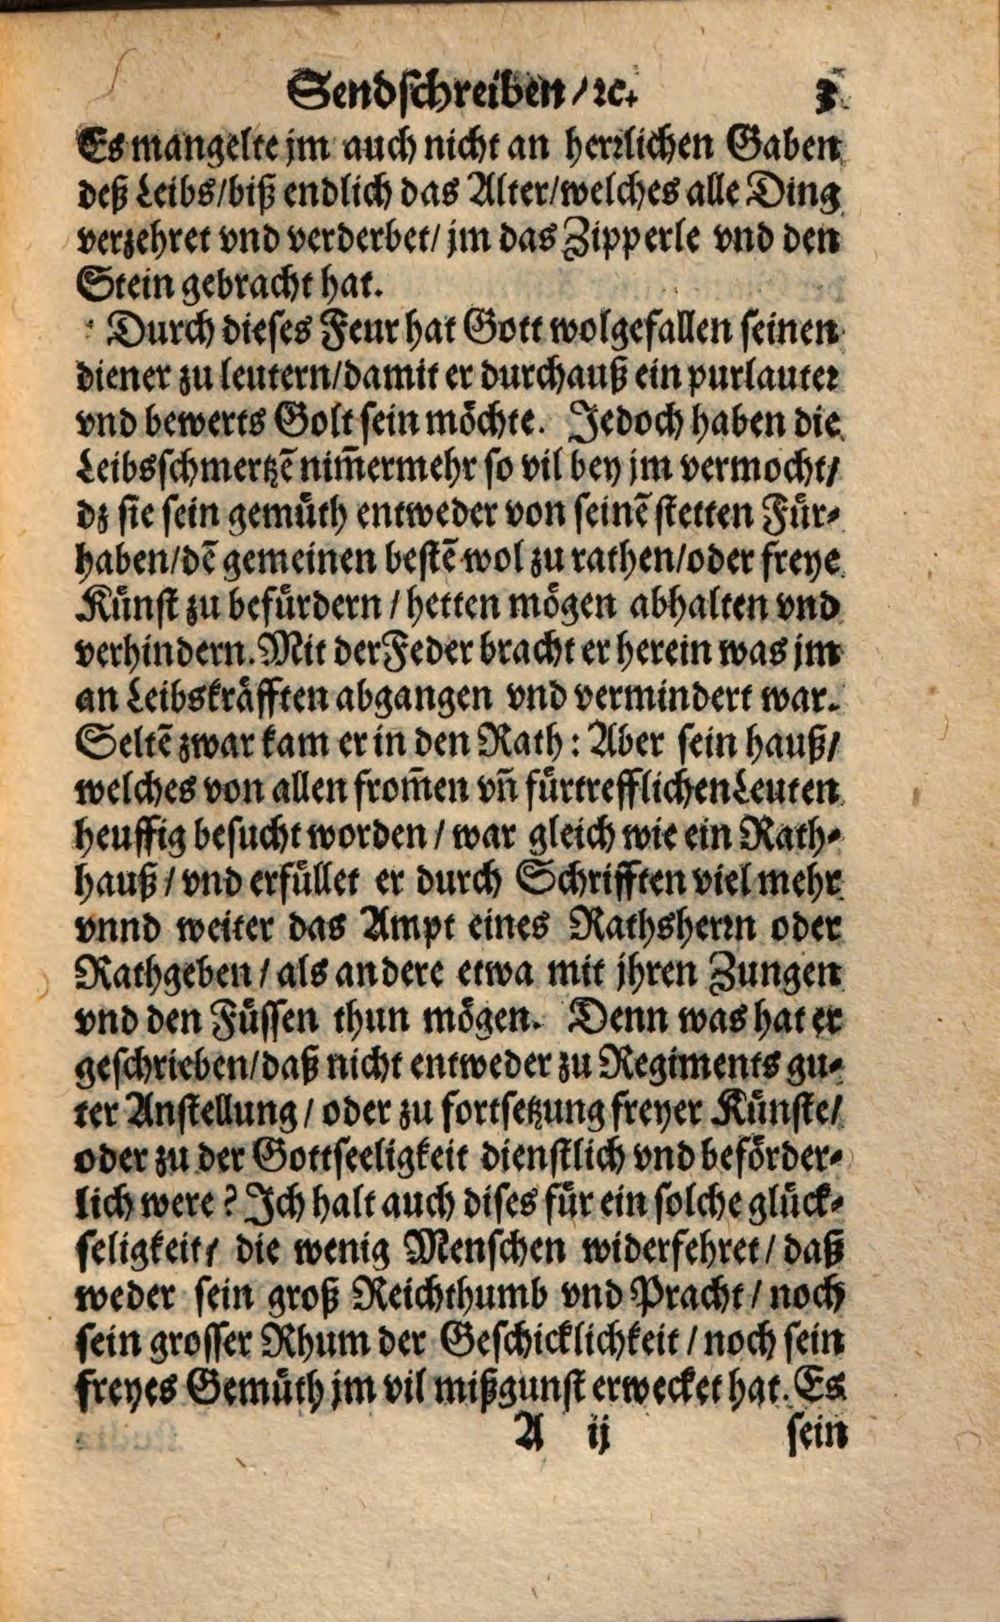 Sendschreiben / ꝛc. 3
Es mangelte jm auch nicht an herꝛlichen Gaben
deß Leibs / biß endlich das Alter / welches alle Ding
verzehret vnd verderbet / jm das Zipperle vnd den
Stein gebracht hat.
Durch dieses Feur hat Gott wolgefallen seinen
diener zu leutern / damit er durchauß ein purlauteꝛ
vnd bewerts Golt sein moͤchte. Jedoch haben die
Leibsschmertzẽ nim̃ermehr so vil bey jm vermocht /
dz sie sein gemuͤth entweder von seinẽ stetten Fuͤr⸗
haben / dẽ gemeinen bestẽ wol zu rathen / oder freye
Kuͤnst zu befuͤrdern / hetten moͤgen abhalten vnd
verhindern. Mit der Feder bracht er herein was jm
an Leibskraͤfften abgangen vnd vermindert war.
Seltẽ zwar kam er in den Rath : Aber sein hauß /
welches von allen from̃en vñ fuͤrtrefflichen Leuten
heuffig besucht worden / war gleich wie ein Rath⸗
hauß / vnd erfuͤllet er durch Schrifften viel mehr
vnnd weiter das Ampt eines Rathsherꝛn oder
Rathgeben / als andere etwa mit jhren Zungen
vnd den Fuͤssen thun moͤgen. Denn was hat er
geschrieben / daß nicht entweder zu Regiments gu⸗
ter Anstellung / oder zu fortsetzung freyer Kuͤnste /
oder zu der Gottseeligkeit dienstlich vnd befoͤrder⸗
lich were ? Ich halt auch dises fuͤr ein solche gluͤck⸗
seligkeit / die wenig Menschen widerfehret / daß
weder sein groß Reichthumb vnd Pracht / noch
sein grosser Rhum der Geschicklichkeit / noch sein
freyes Gemuͤth jm vil mißgunst erwecket hat. Es
A ij sein